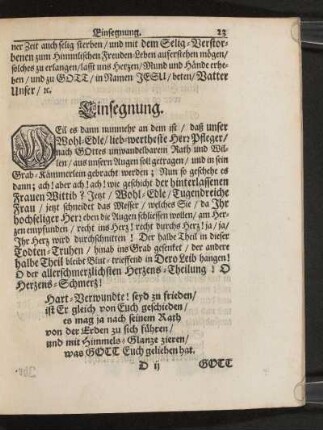 Einsegnung. 23
ner Zeit auch selig sterben / und mit dem Selig-Verstor-
benen zum Himmlischen Freuden-Leben auferstehen mögen /
solches zu erlangen / lasst uns Herzen / Mund und Hände erhe-
ben / und zu GOTT / in Namen JESU / beten / Vatter
Unser / ꝛc.
Einsegnung.
WEil es dann nunmehr an dem ist / daß unser
Wohl-Edle / lieb-wertheste Herr Pfleger /
nach GOttes unwandelbaren Rath und Wil-
len / aus unsern Augen soll getragen / und in sein
Grab-Kämmerlein gebracht werden ; Nun so geschehe es
dann ; ach ! aber ach ! ach ! wie geschicht der hinterlassenen
Frauen Wittib ? Jetzt / Wohl-Edle / Tugendreiche
Frau / jetzt schneidet das Messer / welches Sie / da Ihr
hochseliger Herr eben die Augen schliessen wollen / am Her-
zen empfunden / recht ins Herz ! recht durchs Herz ! ja / ja /
Ihr Herz wird durchschnitten ! Der halbe Theil in dieser
Todten-Truhen / hinab ins Grab gesenket / der andere
halbe Theil bleibt Blut-trieffend in Dero Leib hangen !
O der allerschmerzlichsten Herzens-Theilung ! O
Herzens-Schmerz !
Hart-Verwundte ! seyd zu frieden /
ist Er gleich von Euch geschieden /
es mag ja nach seinem Rath
von der Erden zu sich führen /
und mit Himmels-Glanze zieren /
was GOTT Euch geliehen hat.
D ij GOTT